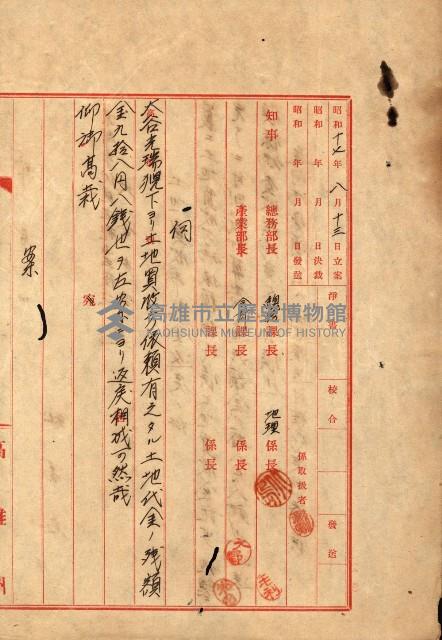 昭和十七年八月十三日立案
昭和 年 月 日決裁
昭和 年 月 日發送
淨書
校合
發送
係取扱者
知事
總務部長
課長
地理係長
產業部長
課長
係長
伺
大谷光瑞猊下ヨリ土地買收ノ依頼有之タル土地代金ノ残額
金九拾八円八銭也ヲ左案ニヨリ返戻相成可然哉
仰御高裁
案
高雄州
高雄市立歷史博物館
KAOHSIUNG MUSEUM OF HISTORY